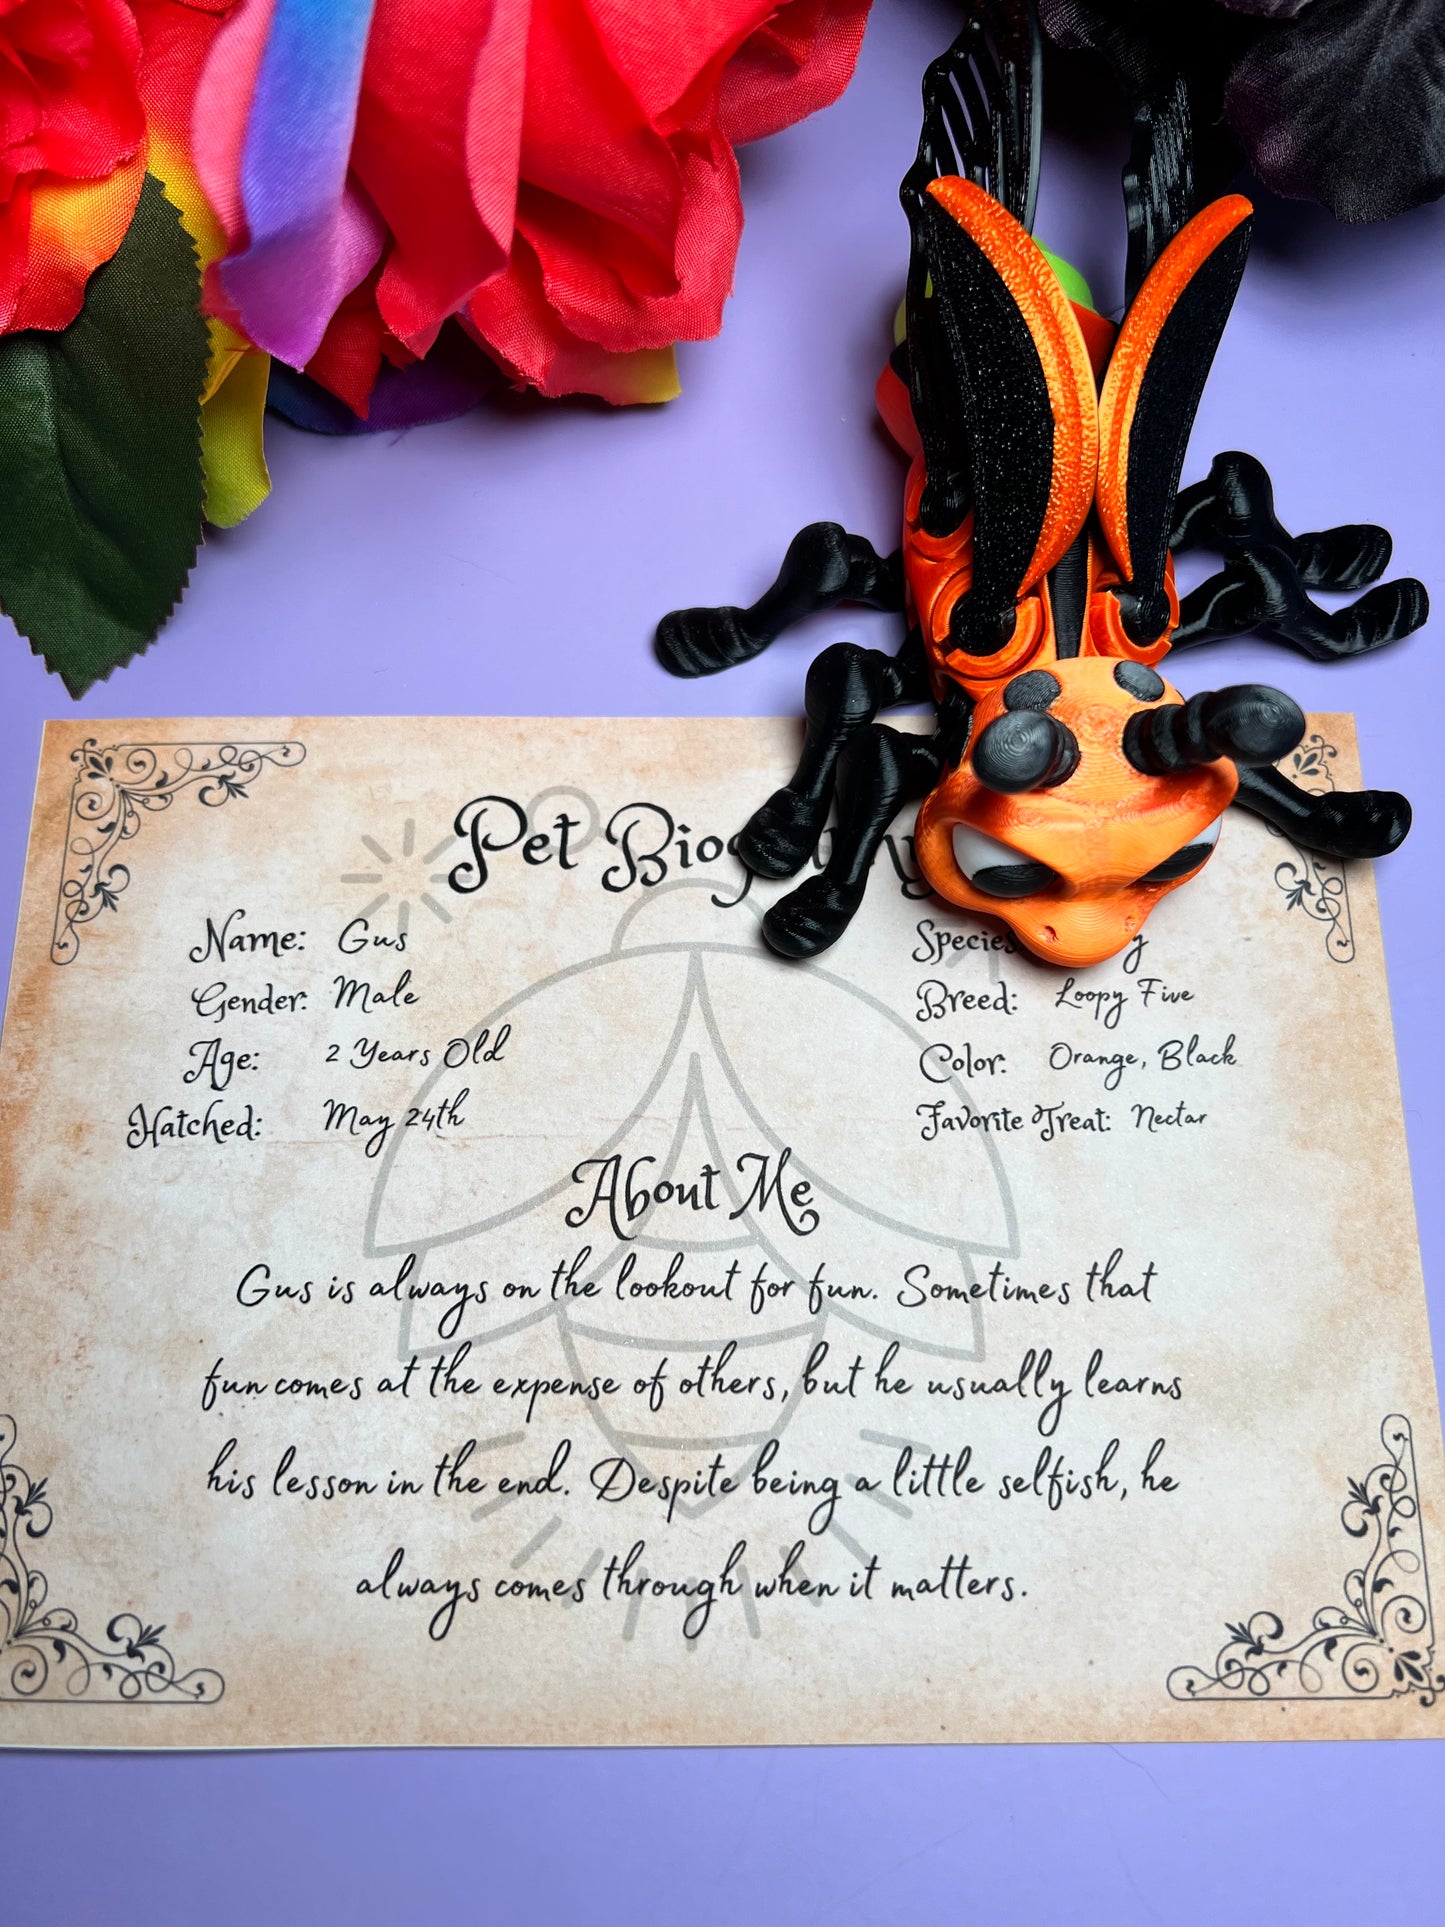 Pet
Name: Gus
Species
Gender: Male
Breed: Loopy Five
Age: 2 Years Old
Color: Orange, Black
Hatched: May 24th
Favorite Treat: Nectar
About Me
Gus is always on the lookout for fun. Sometimes that
fun comes at the expense of others, but he usually learns
his lesson in the end. Despite being a little selfish, he
always comes through when it matters.